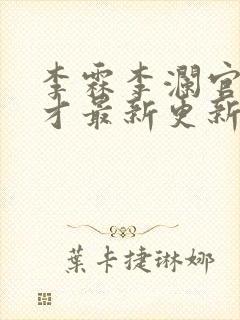 李霖李澜官
才最新更新
葉卡捷琳娜